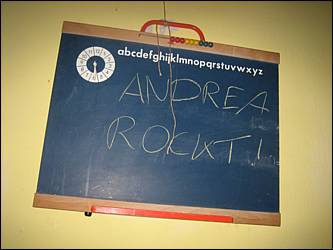 abcdefghijklmnopqrstuvwxyz
ANDREA
ROCKT!